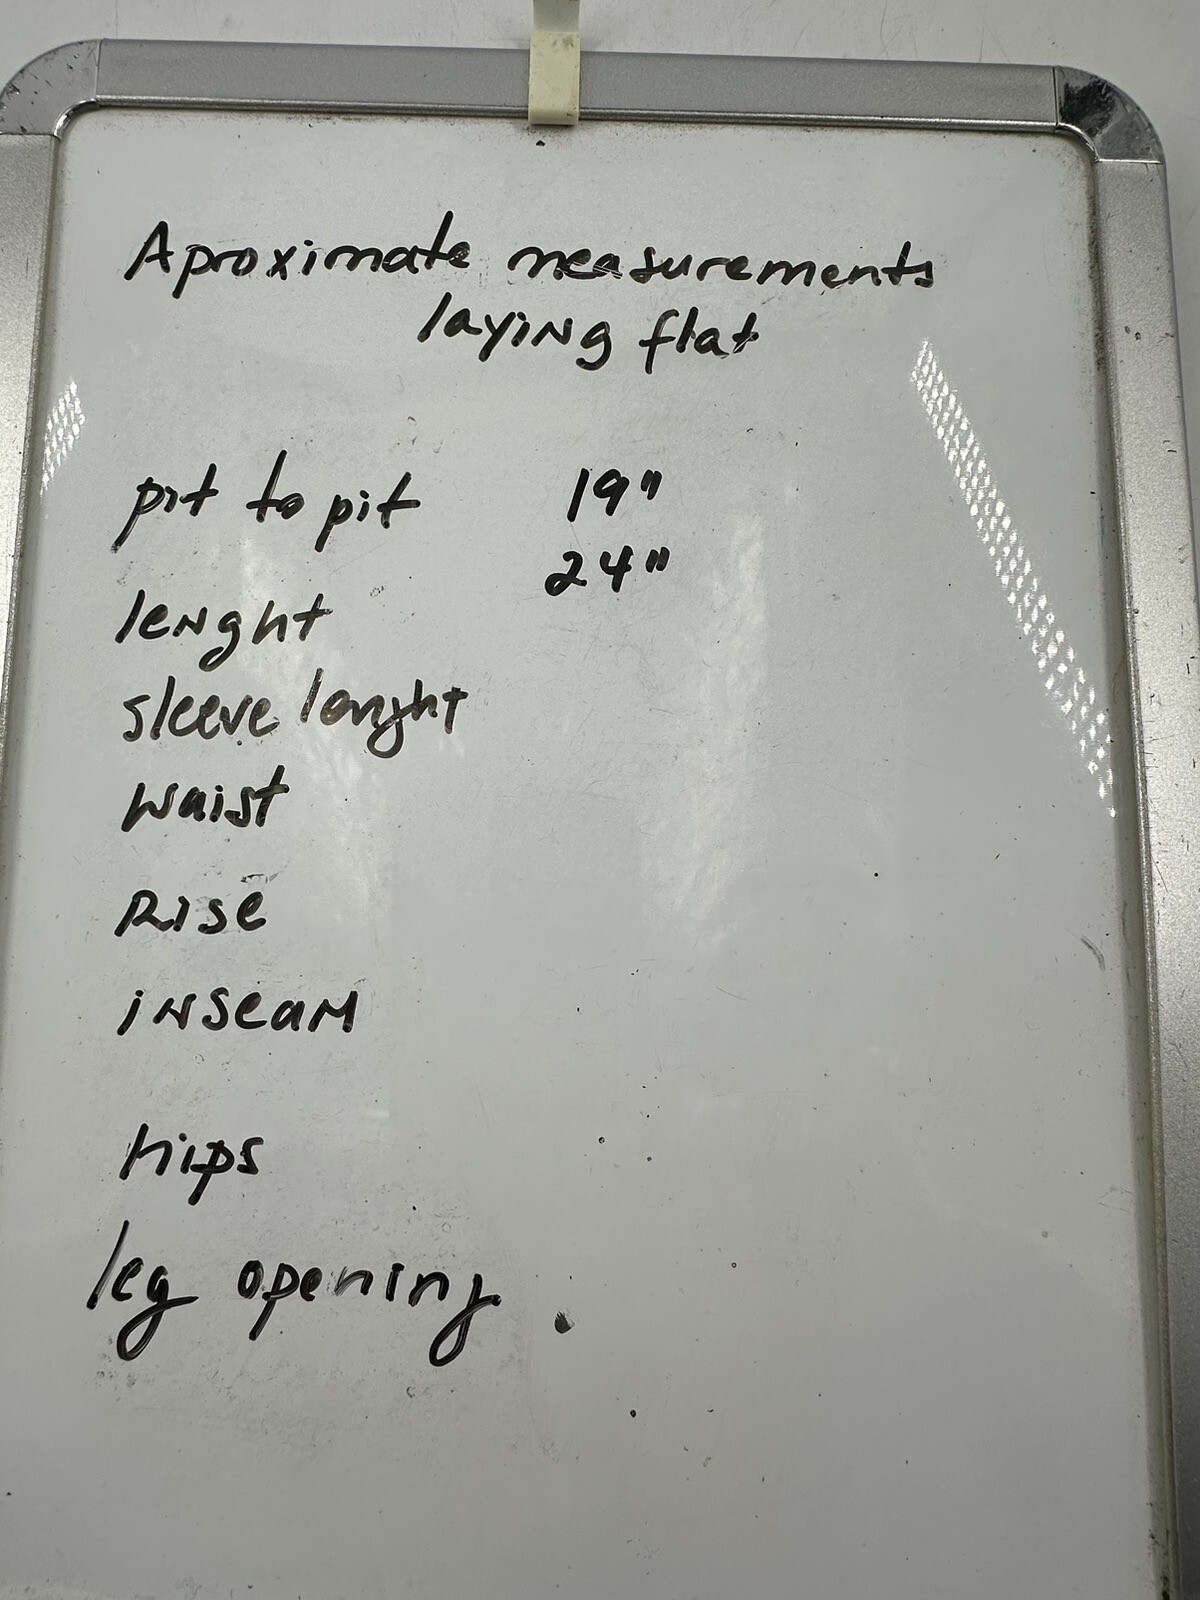 Aproximate measurements
laying flat
pit to pit 19"
lenght 24"
sleeve lenght
waist
Rise
inseam
hips
leg opening